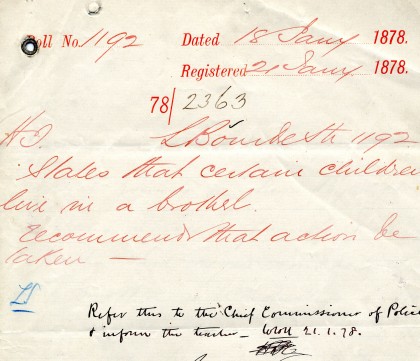 Roll No. 1192 Dated 18 Jany 1878.
Registered 21 Jany 1878.
78/2363
H.T. L Bourke St 1192
States that certain children
live in a brothel.
Recommends that action be
taken —
Refer this to the Chief Commissioner of Police
& inform the teacher — 21.1.78.